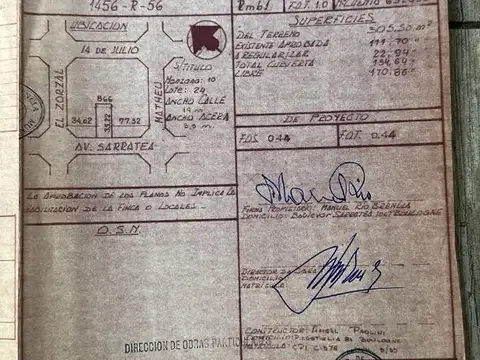 1456-R-56
F.O.T. 1.0
UBICACION
14 DE JULIO
EL ZORZAL
MATHEU
866
34,62
33,22
77,52
AV. SARRATEA
S/TITULO
MANZANA: 10
LOTE: 24
ANCHO CALLE
ANCHO ACERA
SUPERFICIES
DEL TERRENO 305,50 m²
EXISTENTE APROBADA
A REGULARIZAR
TOTAL CUBIERTA 134,64
LIBRE 170,86
DE PROYECTO
F.O.S. 0.44
F.O.T. 0.44
LA APROBACION DE LOS PLANOS NO IMPLICA LA
HABILITACION DE LA FINCA O LOCALES.-
O.S.N.
FIRMA PROPIETARIO: MANUEL RIO BRENLLA
DOMICILIO: SARRATEA BOULOGNE
DIRECTOR DE OBRA
DOMICILIO
MATRICULA:
CONSTRUCTOR: ANGEL PAOLINI
DIRECCION DE OBRAS PARTIC